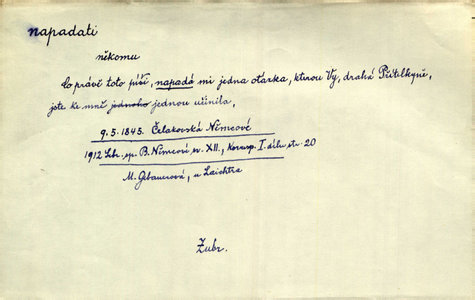 napadati
někomu
Co právě toto píši, napadá mi jedna otázka, kterou Vy, drahá Přítelkyně,
jste ke mně jednoho jednou učinila,
9.5.1845. Čelakovská Němcové
1912 Sebr. sp. B. Němcové sv. XII., Koresp. I. dílu str. 20
M. Gebauerová, u Laichtra
Zubr.